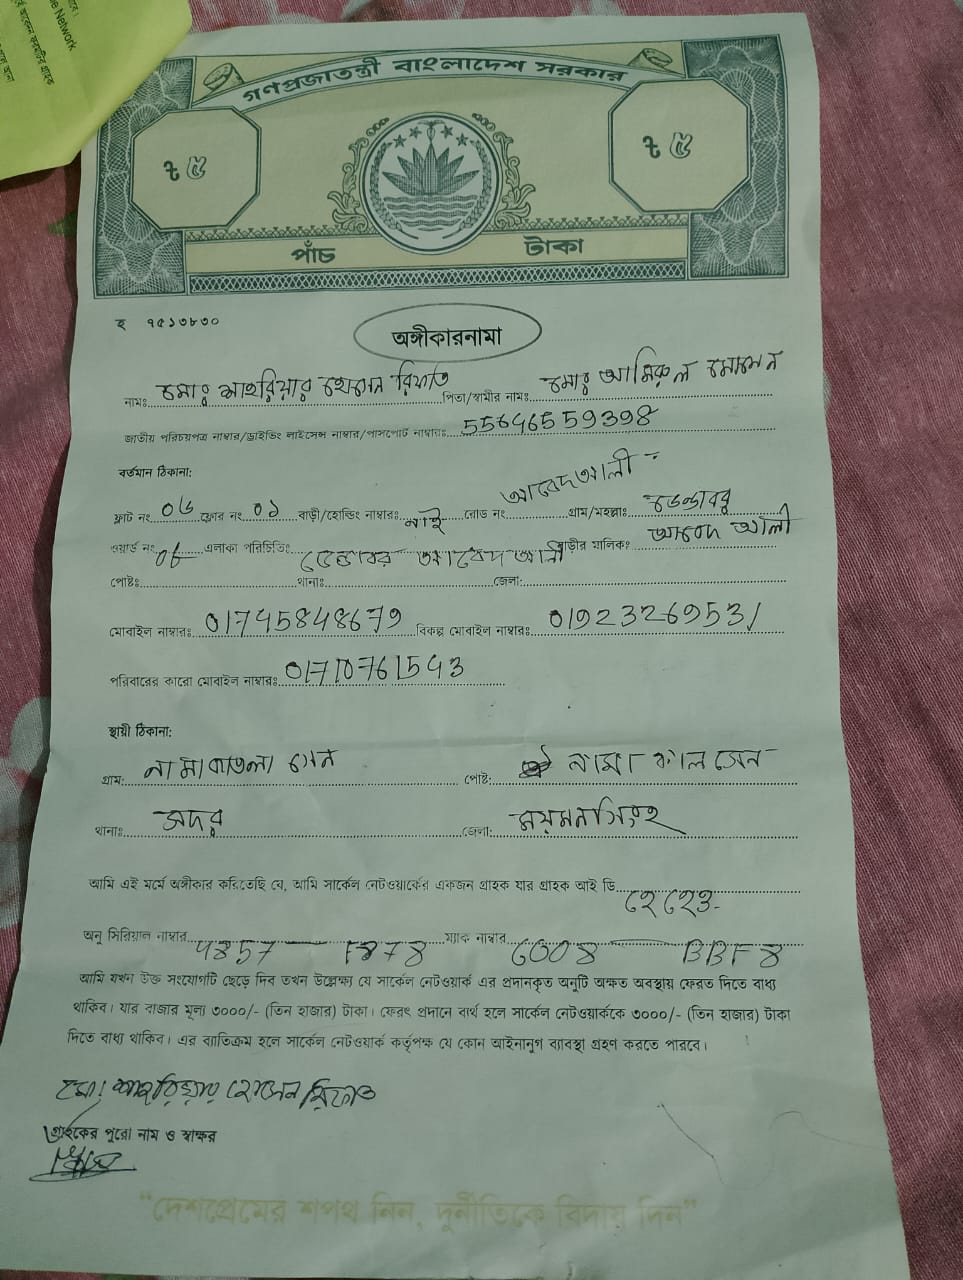 e Network
গণপ্রজাতন্ত্রী বাংলাদেশ সরকার
৳ ৫ ৳ ৫
পাঁচ টাকা
হ ৭৫১৩৮৩০
অঙ্গীকারনামা
নামঃ মোঃ শাহরিয়ার হোসেন রিফাত পিতা/স্বামীর নামঃ মোঃ আমিরুল মোমেন
জাতীয় পরিচয়পত্র নাম্বার/ড্রাইভিং লাইসেন্স নাম্বার/পাসপোর্ট নাম্বারঃ 55646559398
বর্তমান ঠিকানা:
ফ্লাট নং ০৬ ফ্লোর নং ০১ বাড়ী/হোল্ডিং নাম্বারঃ নাই রোড নং আবেদ আলী গ্রাম/মহল্লাঃ
ওয়ার্ড নং ০৮ এলাকা পরিচিতিঃ আবেদ আলী বাড়ীর মালিকঃ আবেদ আলী
পোষ্টঃ থানাঃ জেলা:
মোবাইল নাম্বারঃ 01745848679 বিকল্প মোবাইল নাম্বারঃ 01923269531
পরিবারের কারো মোবাইল নাম্বারঃ 01710761543
স্থায়ী ঠিকানা:
গ্রাম: পোষ্ট:
থানাঃ সদর জেলা: ময়মনসিংহ
আমি এই মর্মে অঙ্গীকার করিতেছি যে, আমি সার্কেল নেটওয়ার্কের একজন গ্রাহক যার গ্রাহক আই ডি
অনু সিরিয়াল নাম্বার 4857 — F878 ম্যাক নাম্বার — BBF8
আমি যখন উক্ত সংযোগটি ছেড়ে দিব তখন উল্লেক্ষ্য যে সার্কেল নেটওয়ার্ক এর প্রদানকৃত অনুটি অক্ষত অবস্থায় ফেরত দিতে বাধ্য
থাকিব। যার বাজার মূল্য ৩০০০/- (তিন হাজার) টাকা। ফেরৎ প্রদানে ব্যর্থ হলে সার্কেল নেটওয়ার্ককে ৩০০০/- (তিন হাজার) টাকা
দিতে বাধ্য থাকিব। এর ব্যতিক্রম হলে সার্কেল নেটওয়ার্ক কর্তৃপক্ষ যে কোন আইনানুগ ব্যবস্থা গ্রহণ করতে পারবে।
মোঃ শাহরিয়ার হোসেন রিফাত
গ্রাহকের পুরো নাম ও স্বাক্ষর
"দেশপ্রেমের শপথ নিন, দুর্নীতিকে বিদায় দিন"